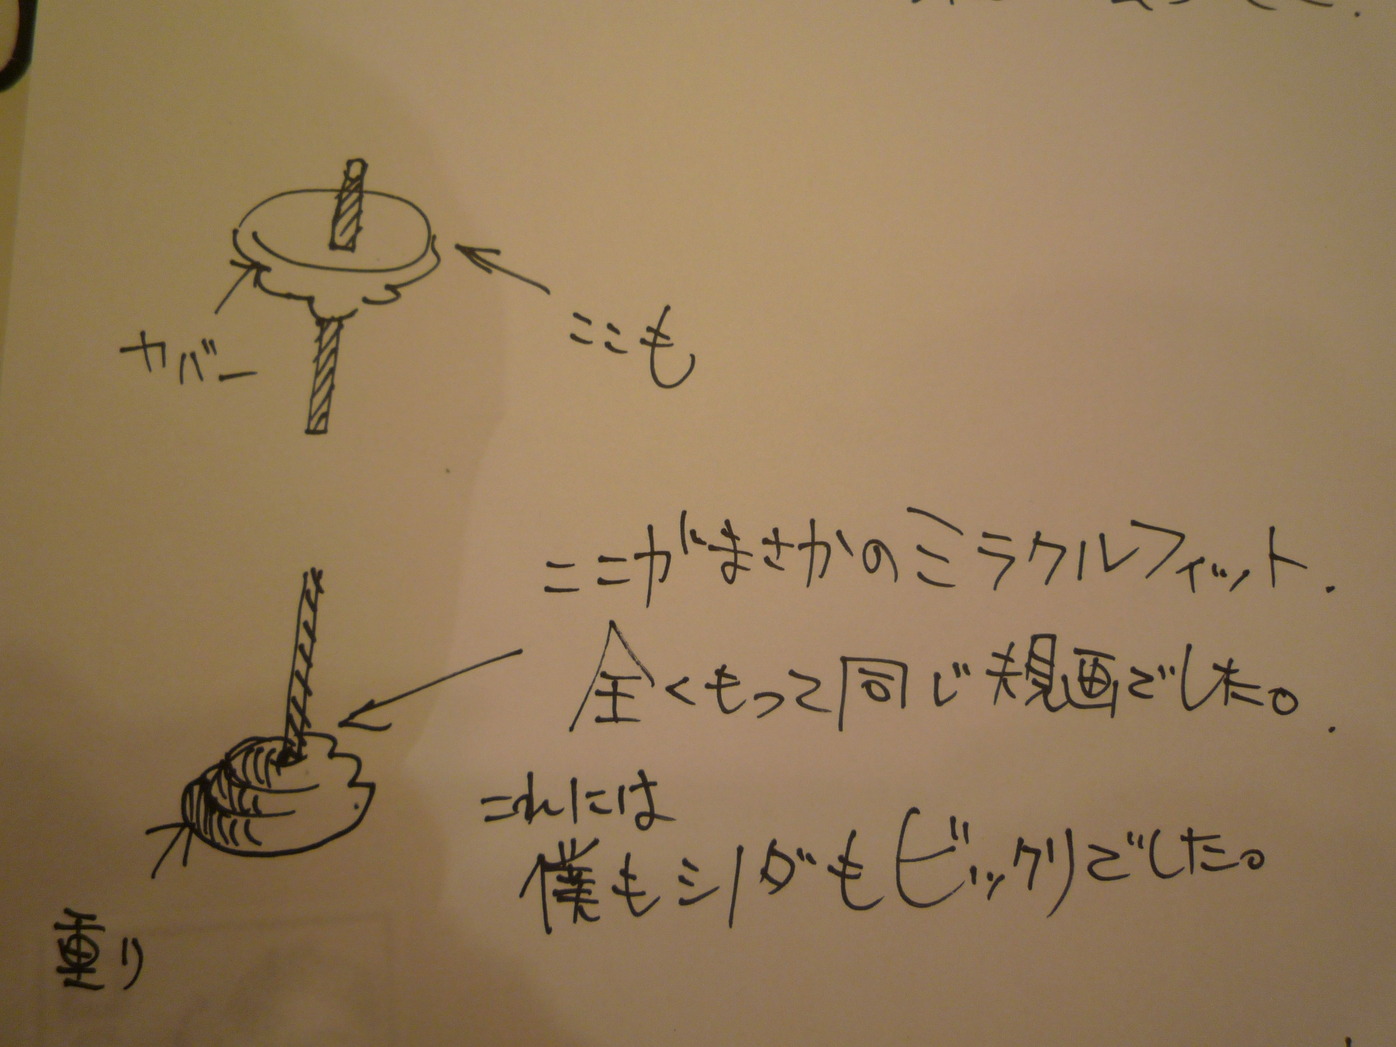 ここも
カバー
ここがまさかのミラクルフィット.
全くもって同じ規画でした。
これには
僕もシノダもビックリでした。
重り